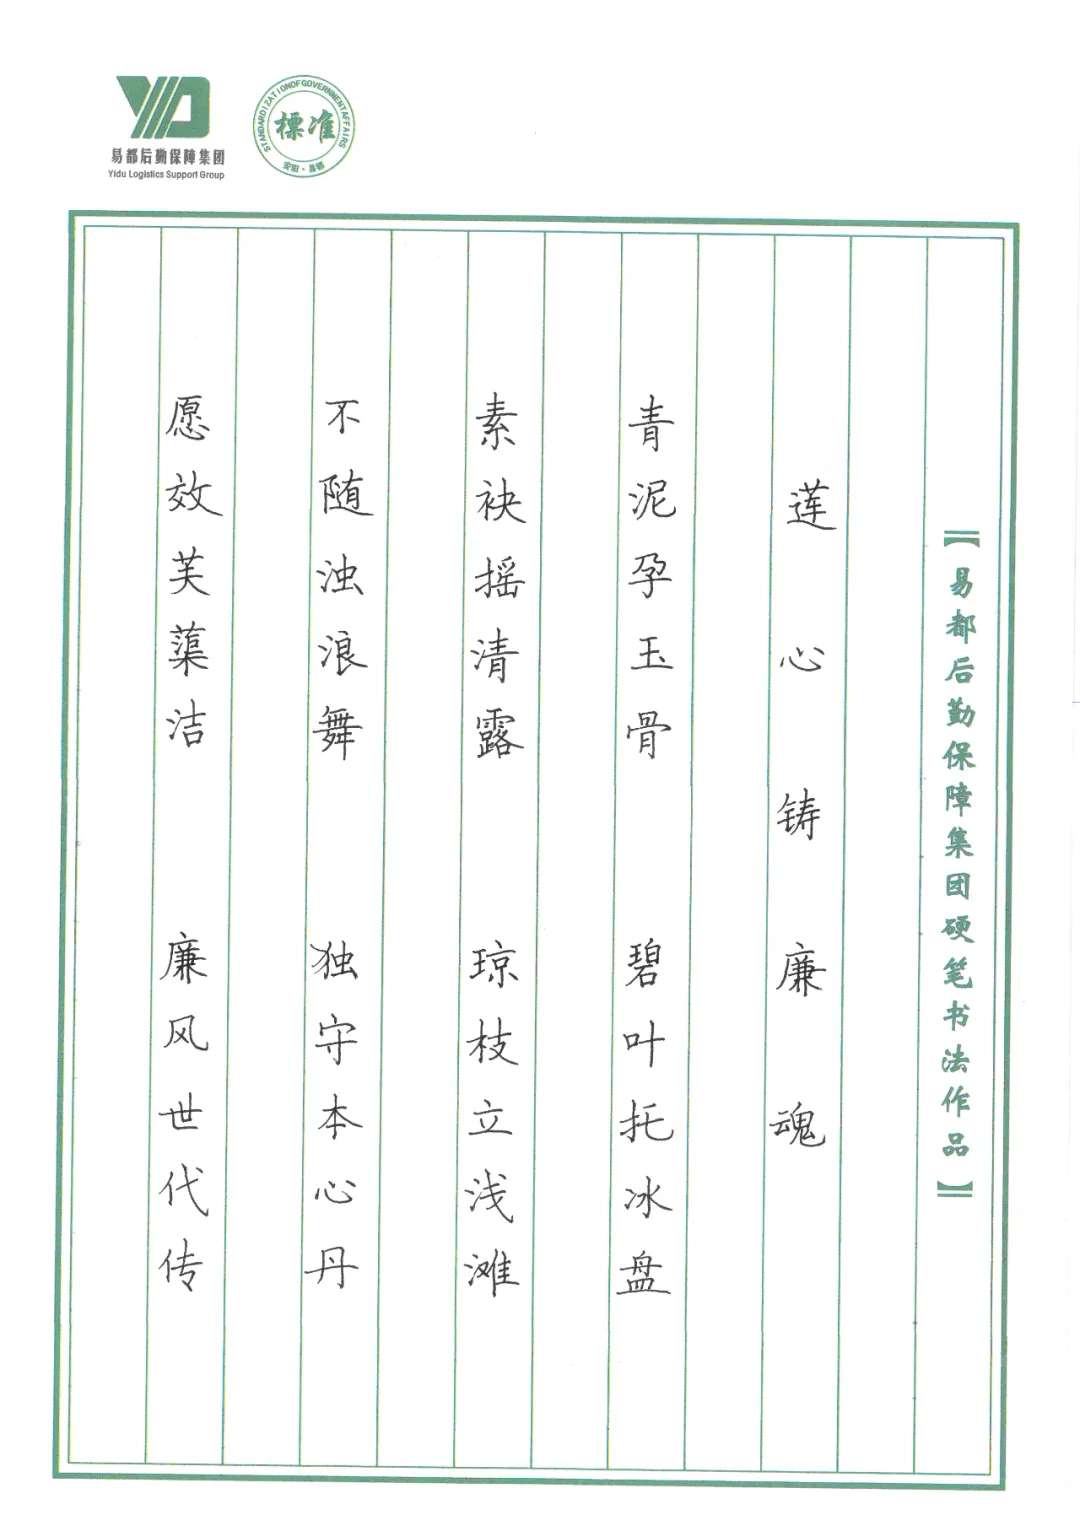 易都后勤保障集团
Yidu Logistics Support Group
STANDARDIZATION OF GOVERNMENT AFFAIRS
標准
【易都后勤保障集团硬笔书法作品】
莲心铸廉魂
青泥孕玉骨 碧叶托冰盘
素袂摇清露 琼枝立浅滩
不随浊浪舞 独守本心丹
愿效芙蕖洁 廉风世代传